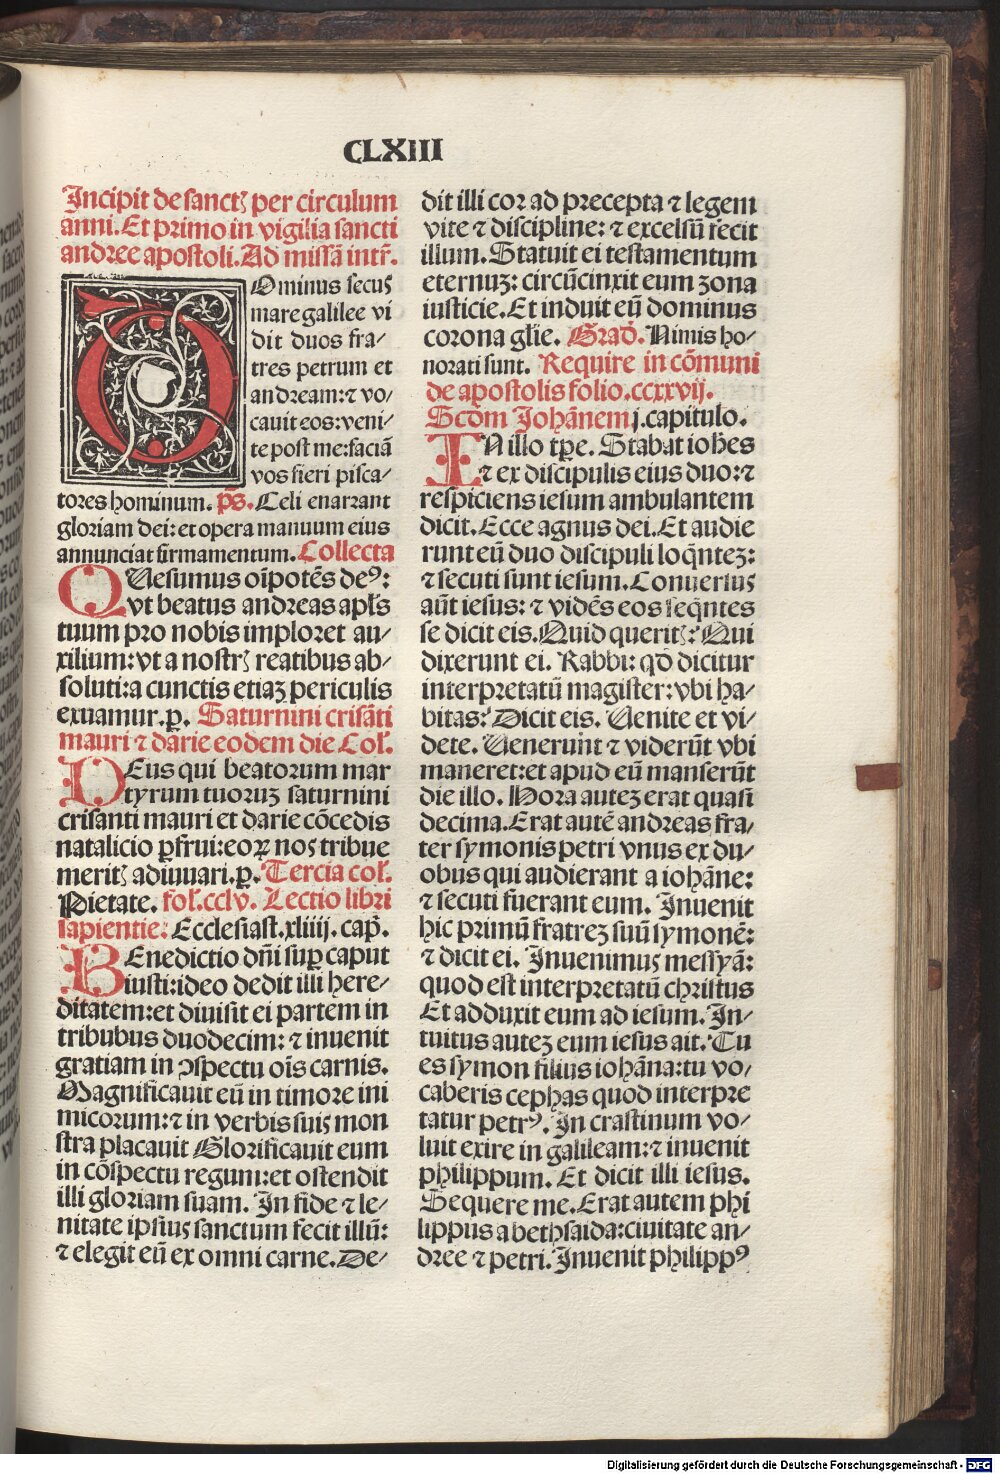 CLXIII
Incipit de sanctꝫ per circulum
anni. Et primo in vigilia sancti
andree apostoli. Ad missā intr̄.
Ominus secus
mare galilee vi
dit duos fra-
tres petrum et
andream: ⁊ vo-
cauit eos: veni-
te post me: faciā
vos fieri pisca-
tores hominum. p̄s. Celi enarrant
gloriam dei: et opera manuum eius
annunciat firmamentum. Collecta
QUesumus oīpotēs deꝰ:
vt beatus andreas apl's
tuum pro nobis imploret au-
xilium: vt a nostrꝭ reatibus ab-
soluti: a cunctis etiaꝫ periculis
exuamur. p. Saturnini crisāti
mauri ⁊ darie eodem die Col'.
DEus qui beatorum mar
tyrum tuoruꝫ saturnini
crisanti mauri et darie cōcedis
natalicio ꝑfrui: eoꝝ nos tribue
meritꝭ adiuuari. p. Tercia col'.
Pietate. fol'. cclv. Lectio libri
sapientie. Ecclesiast. xliiij. cap̄.
BEnedictio dn̄i suꝑ caput
iusti: ideo dedit illi here-
ditatem: et diuisit ei partem in
tribubus duodecim: ⁊ inuenit
gratiam in ↄspectu oīs carnis.
Magnificauit eū in timore ini
micorum: ⁊ in verbis suis mon
stra placauit Glorificauit eum
in cōspectu regum: et ostendit
illi gloriam suam. In fide ⁊ le-
nitate ipsius sanctum fecit illū:
⁊ elegit eū ex omni carne. De-
dit illi cor ad precepta ⁊ legem
vite ⁊ discipline: ⁊ excelsū fecit
illum. Statuit ei testamentum
eternuꝫ: circūcinxit eum zona
iusticie. Et induit eū dominus
corona gl'ie. Grad'. Nimis ho-
norati sunt. Require in cōmuni
de apostolis folio. ccxxvij.
Scd̄m Johānem j. capitulo.
IN illo tꝑe. Stabat ioh̄es
⁊ ex discipulis eius duo: ⁊
respiciens iesum ambulantem
dicit. Ecce agnus dei. Et audie
runt eū duo discipuli loqn̄teꝫ:
⁊ secuti sunt iesum. Conuersus
aūt iesus: ⁊ vidēs eos seqn̄tes
se dicit eis. Quid queritꝭ? Qui
dixerunt ei. Rabbi: qd̄ dicitur
interpretatū magister: vbi ha-
bitas? Dicit eis. Uenite et vi-
dete. Uenerunt ⁊ viderūt vbi
maneret: et apud eū manserūt
die illo. Hora auteꝫ erat quasi
decima. Erat autē andreas fra-
ter symonis petri vnus ex du-
obus qui audierant a iohāne:
⁊ secuti fuerant eum. Inuenit
hic primū fratreꝫ suū symonē:
⁊ dicit ei. Inuenimus messyā:
quod est interpretatū christus
Et adduxit eum ad iesum. In-
tuitus auteꝫ eum iesus ait. Tu
es symon filius iohāna: tu vo-
caberis cephas quod interpre
tatur petrꝰ. In crastinum vo-
luit exire in galileam: ⁊ inuenit
philippum. Et dicit illi iesus.
Sequere me. Erat autem phi
lippus a bethsaida: ciuitate an-
dree ⁊ petri. Inuenit philippꝰ
Digitalisierung gefördert durch die Deutsche Forschungsgemeinschaft - DFG